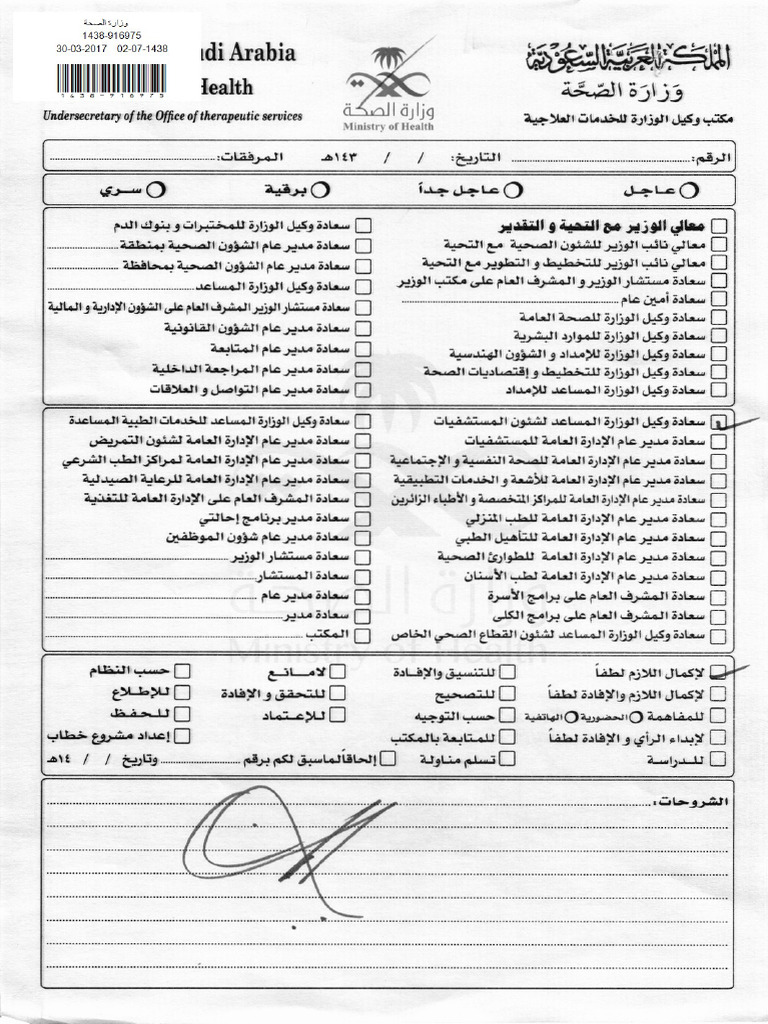 وزارة الصحة
1438-916975
30-03-2017 02-07-1438
1438916975
udi Arabia
Health
Undersecretary of the Office of therapeutic services
وزارة الصحة
Ministry of Health
المملكة العربية السعودية
وزارة الصحة
مكتب وكيل الوزارة للخدمات العلاجية
الرقم: التاريخ: / / ١٤٣هـ المرفقات:
عاجل عاجل جداً برقية سري
معالي الوزير مع التحية و التقدير
معالي نائب الوزير للشئون الصحية مع التحية
معالي نائب الوزير للتخطيط و التطوير مع التحية
سعادة مستشار الوزير و المشرف العام على مكتب الوزير
سعادة أمين عام
سعادة وكيل الوزارة للصحة العامة
سعادة وكيل الوزارة للموارد البشرية
سعادة وكيل الوزارة للإمداد و الشؤون الهندسية
سعادة وكيل الوزارة للتخطيط و إقتصاديات الصحة
سعادة وكيل الوزارة المساعد للإمداد
سعادة وكيل الوزارة للمختبرات و بنوك الدم
سعادة مدير عام الشؤون الصحية بمنطقة
سعادة مدير عام الشؤون الصحية بمحافظة
سعادة وكيل الوزارة المساعد
سعادة مستشار الوزير المشرف العام على الشؤون الإدارية و المالية
سعادة مدير عام الشؤون القانونية
سعادة مدير عام المتابعة
سعادة مدير عام المراجعة الداخلية
سعادة مدير عام التواصل و العلاقات
سعادة وكيل الوزارة المساعد لشئون المستشفيات
سعادة مدير عام الإدارة العامة للمستشفيات
سعادة مدير عام الإدارة العامة للصحة النفسية و الإجتماعية
سعادة مدير عام الإدارة العامة للأشعة و الخدمات التطبيقية
سعادة مدير عام الإدارة العامة للمراكز المتخصصة و الأطباء الزائرين
سعادة مدير عام الإدارة العامة للطب المنزلي
سعادة مدير عام الإدارة العامة للتأهيل الطبي
سعادة مدير عام الإدارة العامة للطوارئ الصحية
سعادة مدير عام الإدارة العامة لطب الأسنان
سعادة المشرف العام على برامج الأسرة
سعادة المشرف العام على برامج الكلى
سعادة وكيل الوزارة المساعد لشئون القطاع الصحي الخاص
سعادة وكيل الوزارة المساعد للخدمات الطبية المساعدة
سعادة مدير عام الإدارة العامة لشئون التمريض
سعادة مدير عام الإدارة العامة لمراكز الطب الشرعي
سعادة مدير عام الإدارة العامة للرعاية الصيدلية
سعادة المشرف العام على الإدارة العامة للتغذية
سعادة مدير برنامج إحالتي
سعادة مدير عام شؤون الموظفين
سعادة مستشار الوزير
سعادة المستشار
سعادة مدير عام
سعادة مدير
المكتب
وزارة الصحة
Ministry of Health
لإكمال اللازم لطفاً للتنسيق والإفادة لامانع حسب النظام
لإكمال اللازم والإفادة لطفاً للتصحيح للتحقق و الإفادة للإطلاع
للمفاهمة الحضورية الهاتفية حسب التوجيه للإعتماد للحفظ
لإبداء الرأي و الإفادة لطفاً للمتابعة بالمكتب إعداد مشروع خطاب
للدراسة تسلم مناولة إلحاقاً لماسبق لكم برقم وتاريخ / / ١٤هـ
الشروحات: